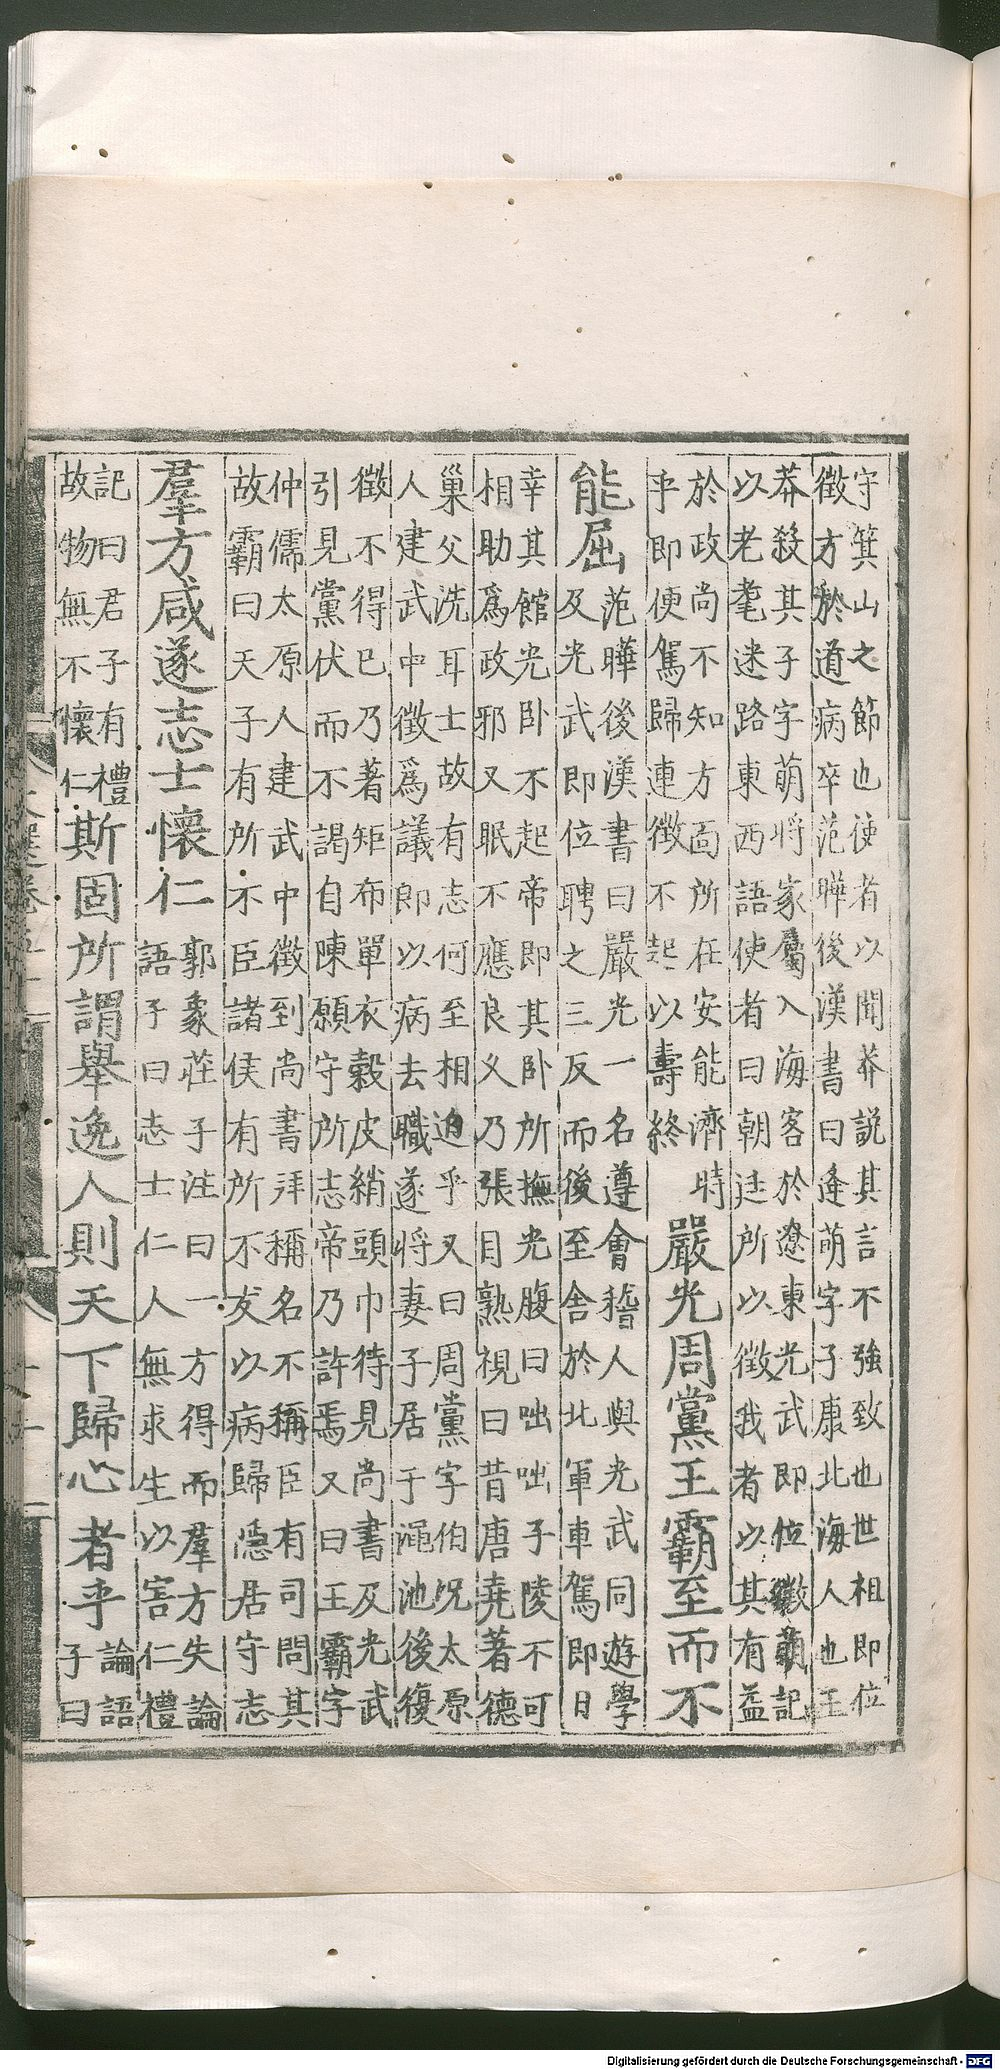 守箕山之節也使者以聞莽說其言不強致也世相即位
徵方於道病卒范曄後漢書曰逄萌字子康北海人也王
莽殺其子宇萌將家屬入海客於遼東光武即位徵萌記
以老耄迷路東西語使者曰朝廷所以徵我者以其有益
於政尚不知方面所在安能濟時
乎即便駕歸連徵不起以壽終
嚴光周黨王霸至而不
能屈
范曄後漢書曰嚴光一名遵會稽人與光武同遊學
及光武即位聘之三反而後至舍於北軍車駕即日
幸其館光卧不起帝即其卧所撫光腹曰咄咄子陵不可
相助爲政邪又眠不應良乆乃張目熟視曰昔唐堯著德
巢父洗耳士故有志何至相迫乎又曰周黨字伯况太原
人建武中徵爲議郎以病去職遂將妻子居于澠池後復
徵不得已乃著矩布單衣穀皮綃頭巾待見尚書及光武
引見黨伏而不謁自陳願守所志帝乃許焉又曰王霸字
仲儒太原人建武中徵到尚書拜稱名不稱臣有司問其
故霸曰天子有所不臣諸侯有所不友以病歸隱居守志
羣方咸遂志士懷仁
郭象莊子注曰一方得而羣方失論
語子曰志士仁人無求生以害仁禮
記曰君子有禮
故物無不懷仁
斯固所謂舉逸人則天下歸心者乎
論語
子曰
文選卷五十
Digitalisierung gefördert durch die Deutsche Forschungsgemeinschaft - DFG